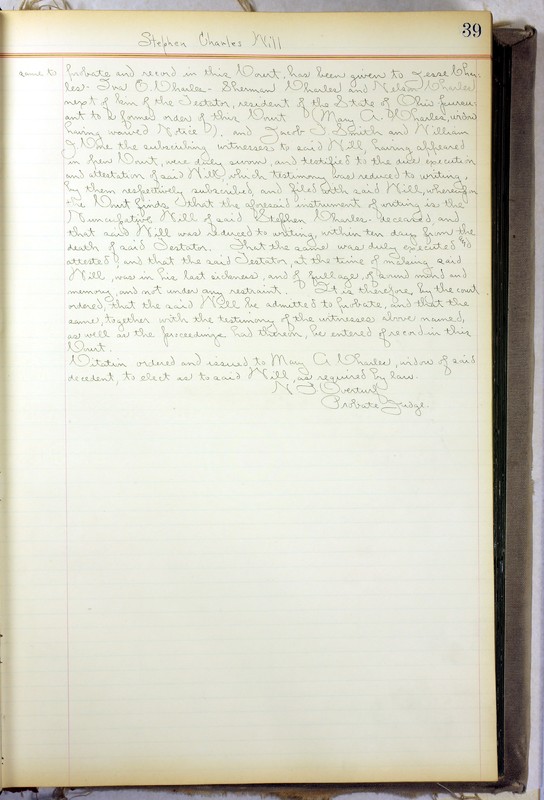 39
Stephen Charles Will
same to probate and record in this Court, has been given to Jesse Char-
les - Ira O. Charles - Sherman Charles and Nelson Charles
next of kin of the Testator, resident of the State of Ohio pursu-
ant to a former order of this Court (Mary A. Charles, widow
having waived Notice), and Jacob S Smith and William
J the subscribing witnesses to said Will, having appeared
in open Court, were duly sworn, and testified to the due execution
and attestation of said Will, which testimony was reduced to writing,
by them respectively subscribed, and filed with said Will, whereupon
the Court finds that the aforesaid instrument of writing is the
Nuncupative Will of said Stephen Charles - deceased, and
that said Will was reduced to writing, within ten days from the
death of said Testator. That the same was duly executed and
attested, and that the said Testator, at the time of making said
Will, was in his last sickness, and of full age, of sound mind and
memory, and not under any restraint. It is therefore, by the court
ordered, that the said Will be admitted to probate, and that the
same, together with the testimony of the witnesses above named,
as well as the proceedings had thereon, be entered of record in this
Court.
Citation ordered and issued, to Mary A. Charles, widow of said
decedent, to elect as to said Will, as required by law.
N J Overturf
Probate Judge.